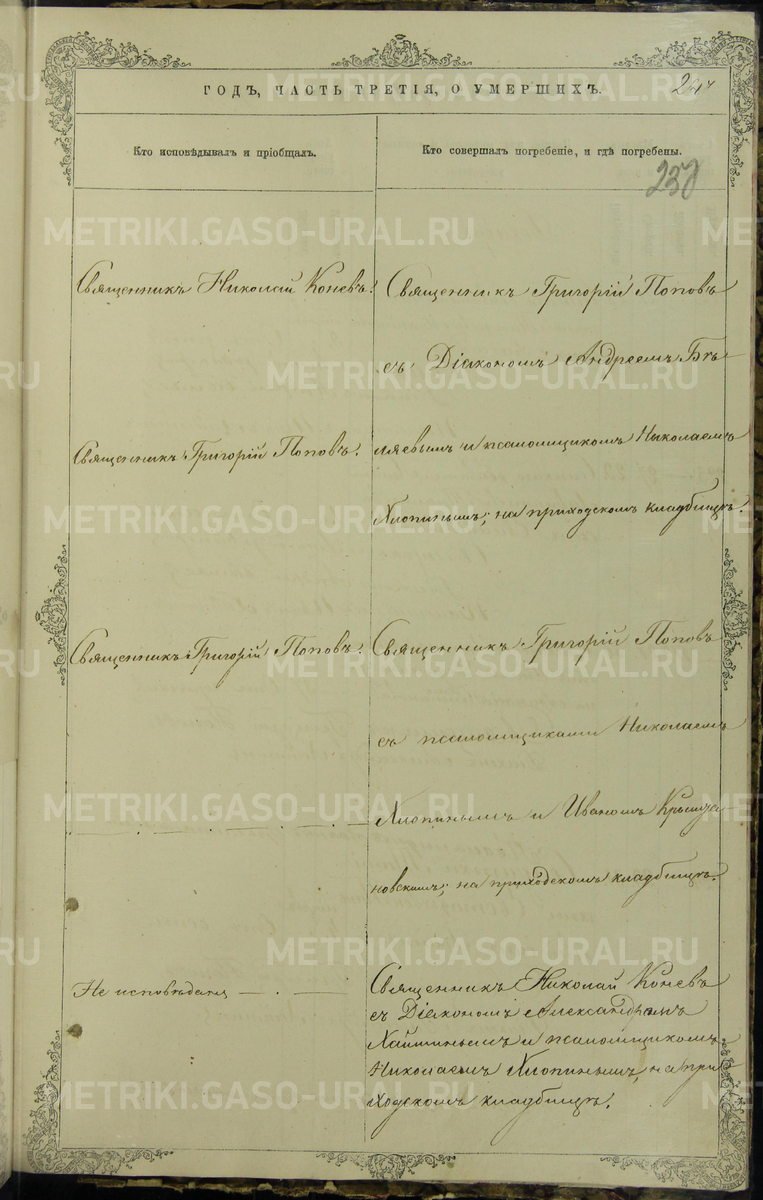 ГОДЪ, ЧАСТЬ ТРЕТІЯ, О УМЕРШИХЪ.
Кто исповѣдывалъ и пріобщалъ.
Кто совершалъ погребеніе, и гдѣ погребены.
METRIKI.GASO-URAL.RU
Священникъ Николай Коневъ.
Священникъ Григорій Поповъ.
Священникъ Григорій Поповъ.
Не исповѣданъ
Священникъ Григорій Поповъ
съ Діакономъ Андреемъ Бѣ-
ляевымъ и псаломщикомъ Николаемъ
Хлопинымъ; на приходскомъ кладбищѣ.
Священникъ Григорій Поповъ
съ псаломщиками Николаемъ
Хлопинымъ и Иваномъ
на приходскомъ кладбищѣ.
Священникъ Николай Коневъ
съ Діакономъ Александромъ
и псаломщикомъ
Николаемъ Хлопинымъ, на при-
ходскомъ кладбищѣ.